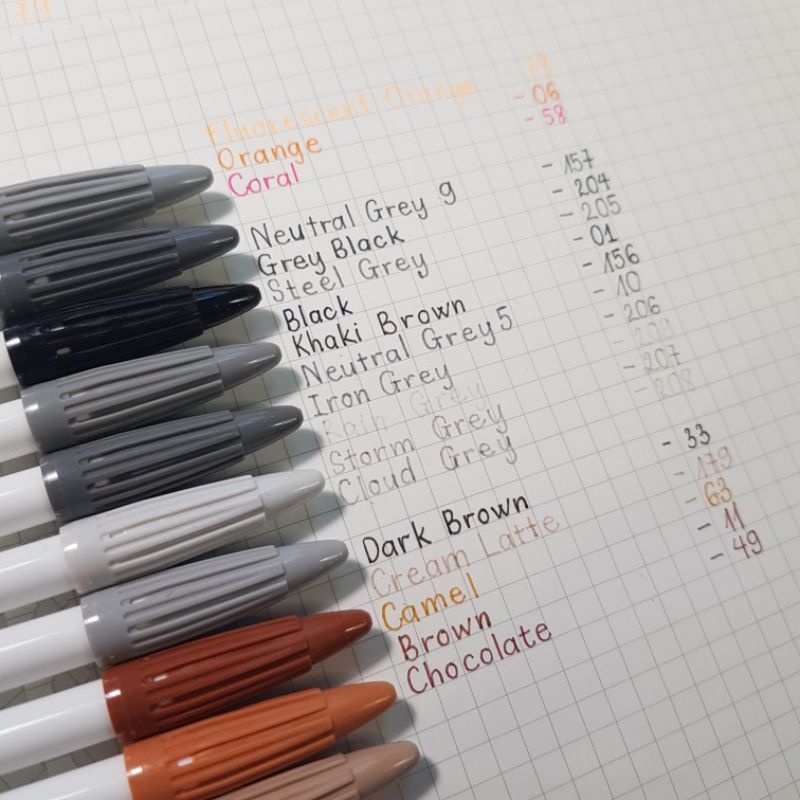 Fluorescent Orange
Orange - 06
Coral - 58
Neutral Grey 9 - 157
Grey Black - 204
Steel Grey - 205
Black - 01
Khaki Brown - 156
Neutral Grey 5 - 10
Iron Grey - 206
Rain Grey - 209
Storm Grey - 207
Cloud Grey - 208
Dark Brown - 33
Cream Latte - 179
Camel - 63
Brown - 11
Chocolate - 49